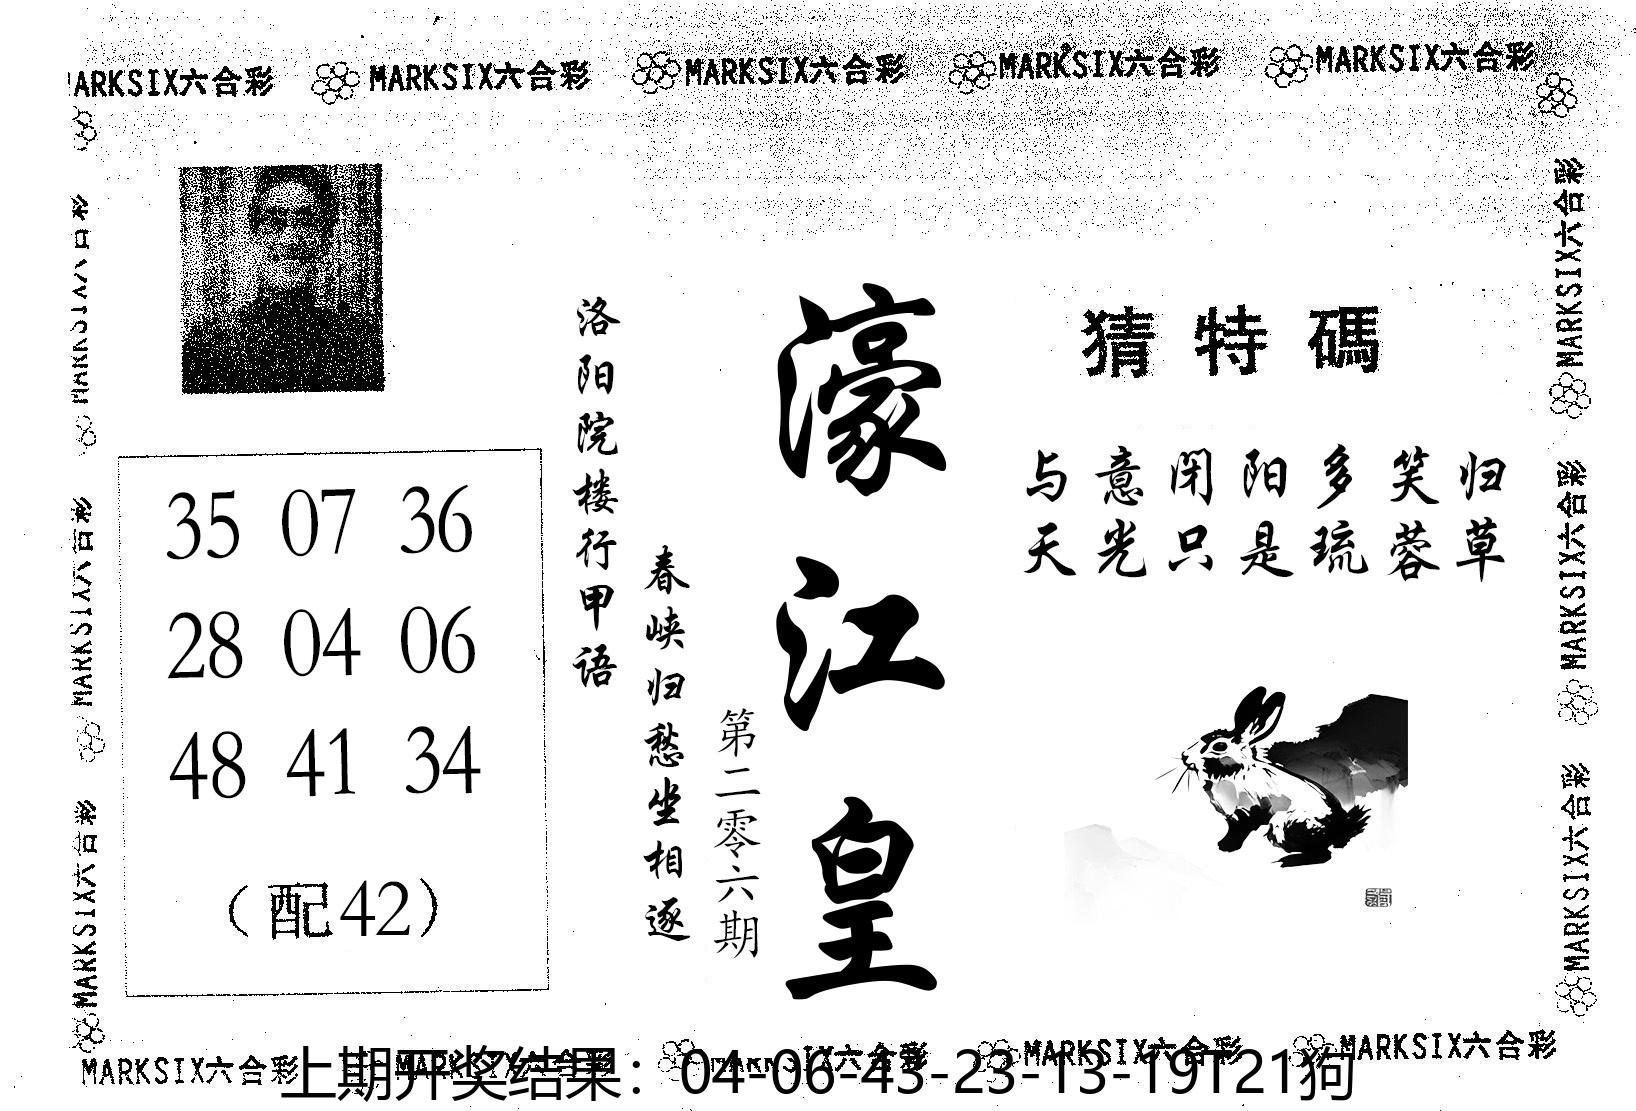 MARKSIX六合彩 MARKSIX六合彩 MARKSIX六合彩 MARKSIX六合彩 MARKSIX六合彩
MARKSIX六合彩
MARKSIX六合彩
MARKSIX六合彩
猜特碼
与意闭阳多笑归
天光只是琉蓉草
濠江皇
第二零六期
洛阳院楼行甲语
春峡归愁坐相逐
35 07 36
28 04 06
48 41 34
（配42）
MARKSIX六合彩
MARKSIX六合彩
MARKSIX六合彩
MARKSIX六合彩 MARKSIX六合彩 MARKSIX六合彩 MARKSIX六合彩 MARKSIX六合彩
上期开奖结果：04-06-43-23-13-19T21狗